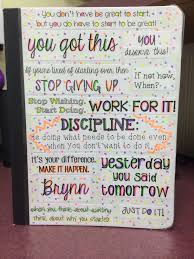 you don't have to be great to start,
but you do have to start to be great!
you got this
you
deserve this!
If you're tired of starting over then
STOP GIVING UP
If not now,
When?
Stop Wishing.
Start Doing.
WORK FOR IT!
DISCIPLINE:
doing what needs to be done even
when you don't want to do it.
it's your difference.
MAKE IT HAPPEN.
yesterday
you said
tomorrow
Brynn
when you think about quitting
think about why you started
JUST DO IT!